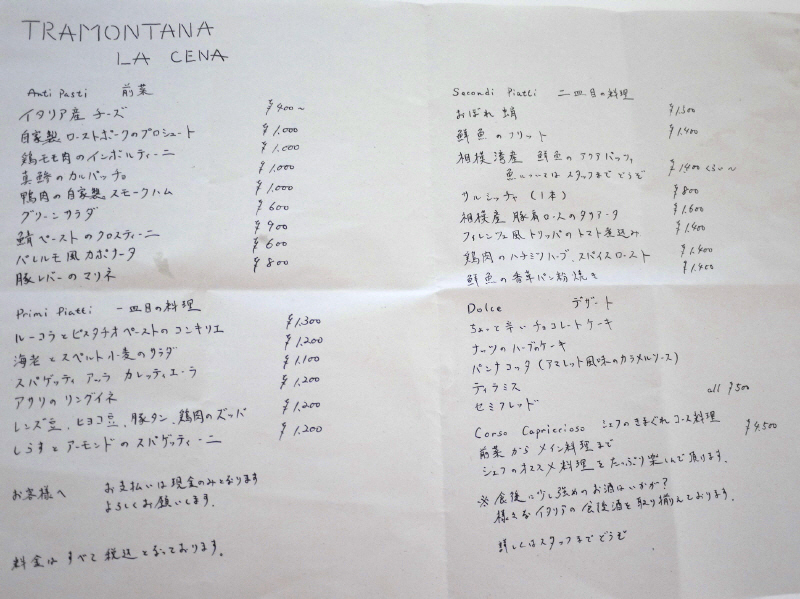 TRAMONTANA
LA CENA
Anti Pasti 前菜
イタリア産 チーズ ¥400~
自家製 ローストポークのプロシュート ¥1,000
鶏モモ肉のインボルティーニ ¥1,000
真鯵のカルパッチョ ¥1,000
鴨肉の自家製 スモークハム ¥1,000
グリーンサラダ ¥600
鯖ペーストのクロスティーニ ¥900
パレルモ風カポナータ ¥600
豚レバーのマリネ ¥800
Primi Piatti 一皿目の料理
ルーコラとピスタチオペーストのコンキリエ ¥1,300
海老とスペルト小麦のサラダ ¥1,200
スパゲッティ アッラ カレッティエーラ ¥1,100
アサリのリングイネ ¥1,200
レンズ豆、ヒヨコ豆、豚タン、鶏肉のズッパ ¥1,200
しらすとアーモンドのスパゲッティーニ ¥1,200
お客様へ お支払いは現金のみとなります
よろしくお願いします。
料金はすべて税込となっております。
Secondi Piatti 二皿目の料理
おぼれ蛸 ¥1,300
鮮魚のフリット ¥1,400
相模湾産 鮮魚のアクアパッツァ
魚についてはスタッフまでどうぞ ¥1400くらい~
サルシッチャ (1本) ¥800
相模産 豚肩ロースのタリアータ ¥1,600
フィレンツェ風トリッパのトマト煮込み ¥1,400
鶏肉のハチミツハーブ、スパイスロースト ¥1,400
鮮魚の香草パン粉焼き ¥1,400
Dolce デザート
ちょっと辛いチョコレートケーキ
ナッツのハーブのケーキ
パンナコッタ (アマレット風味のカラメルソース)
ティラミス
セミフレッド all ¥500
Corso Capriccioso シェフのきまぐれコース料理
前菜からメイン料理まで ¥4,500
シェフのオススメ料理をたっぷり楽しんで頂けます。
※食後に少し強めのお酒はいかが?
様々なイタリアの食後酒を取り揃えております。
詳しくはスタッフまでどうぞ